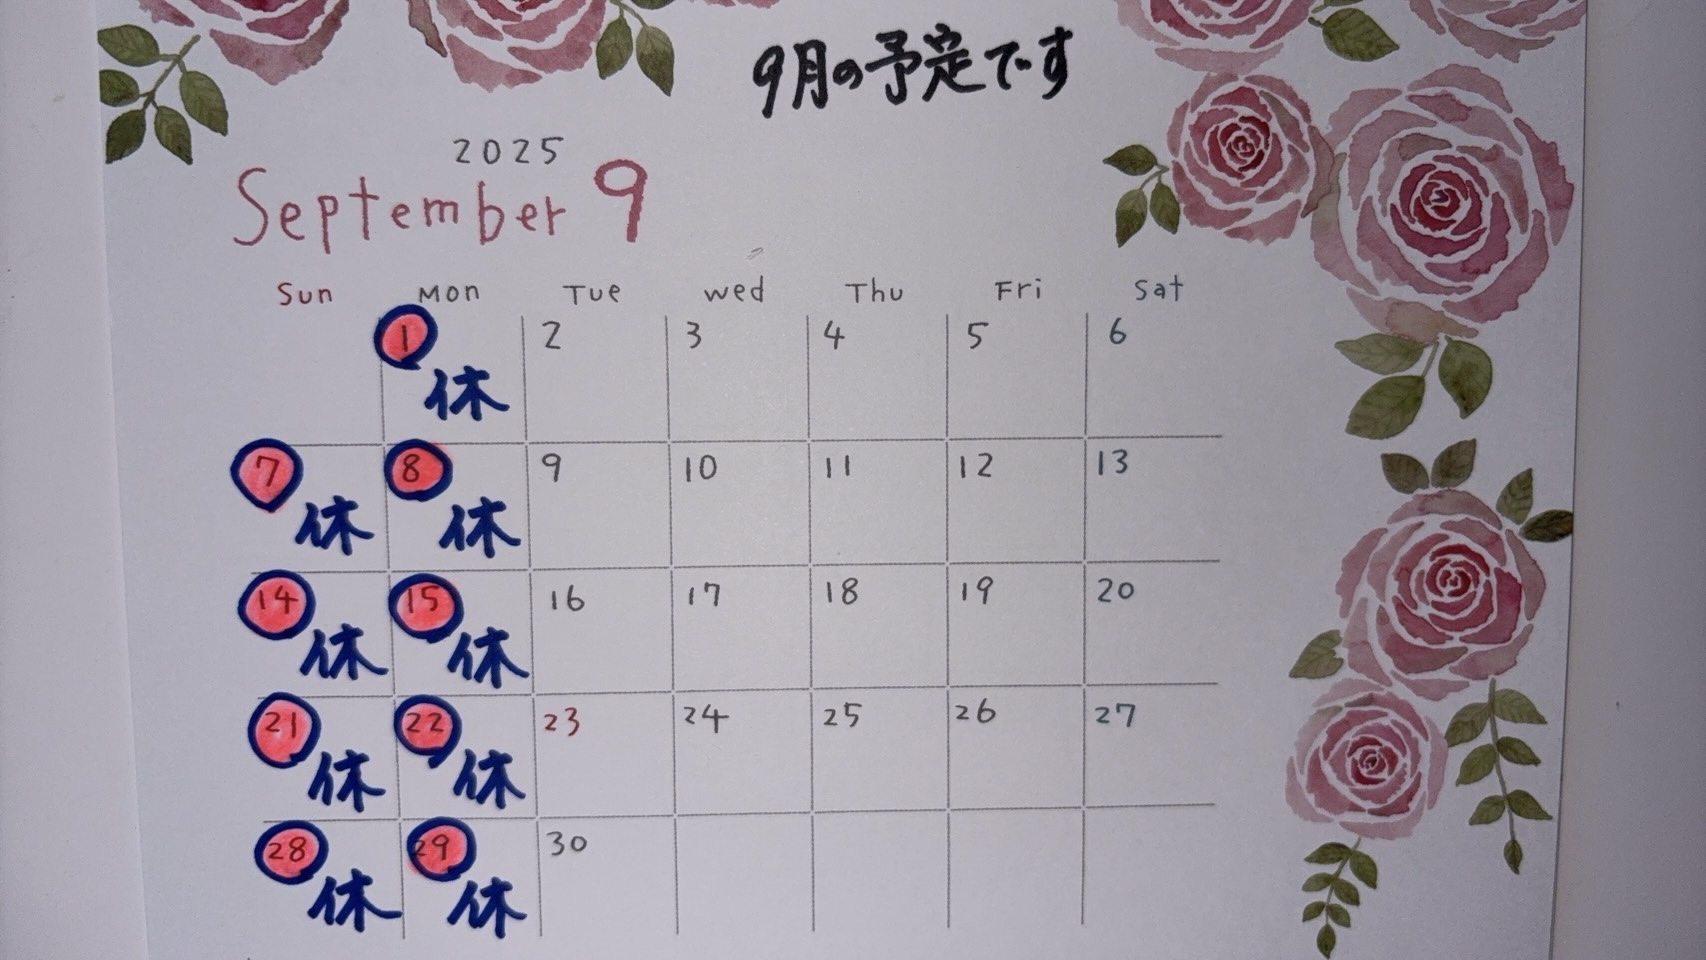 9月の予定です
2025
September 9
Sun Mon Tue Wed Thu Fri Sat
1 2 3 4 5 6
休
7 8 9 10 11 12 13
休 休
14 15 16 17 18 19 20
休 休
21 22 23 24 25 26 27
休 休
28 29 30
休 休